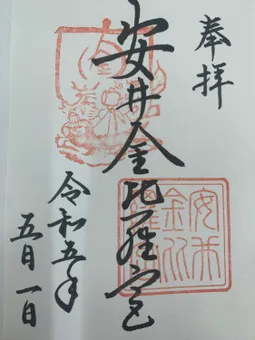 奉拝
安井金比羅宮
安井
金比
羅宮
令和五年
五月一日